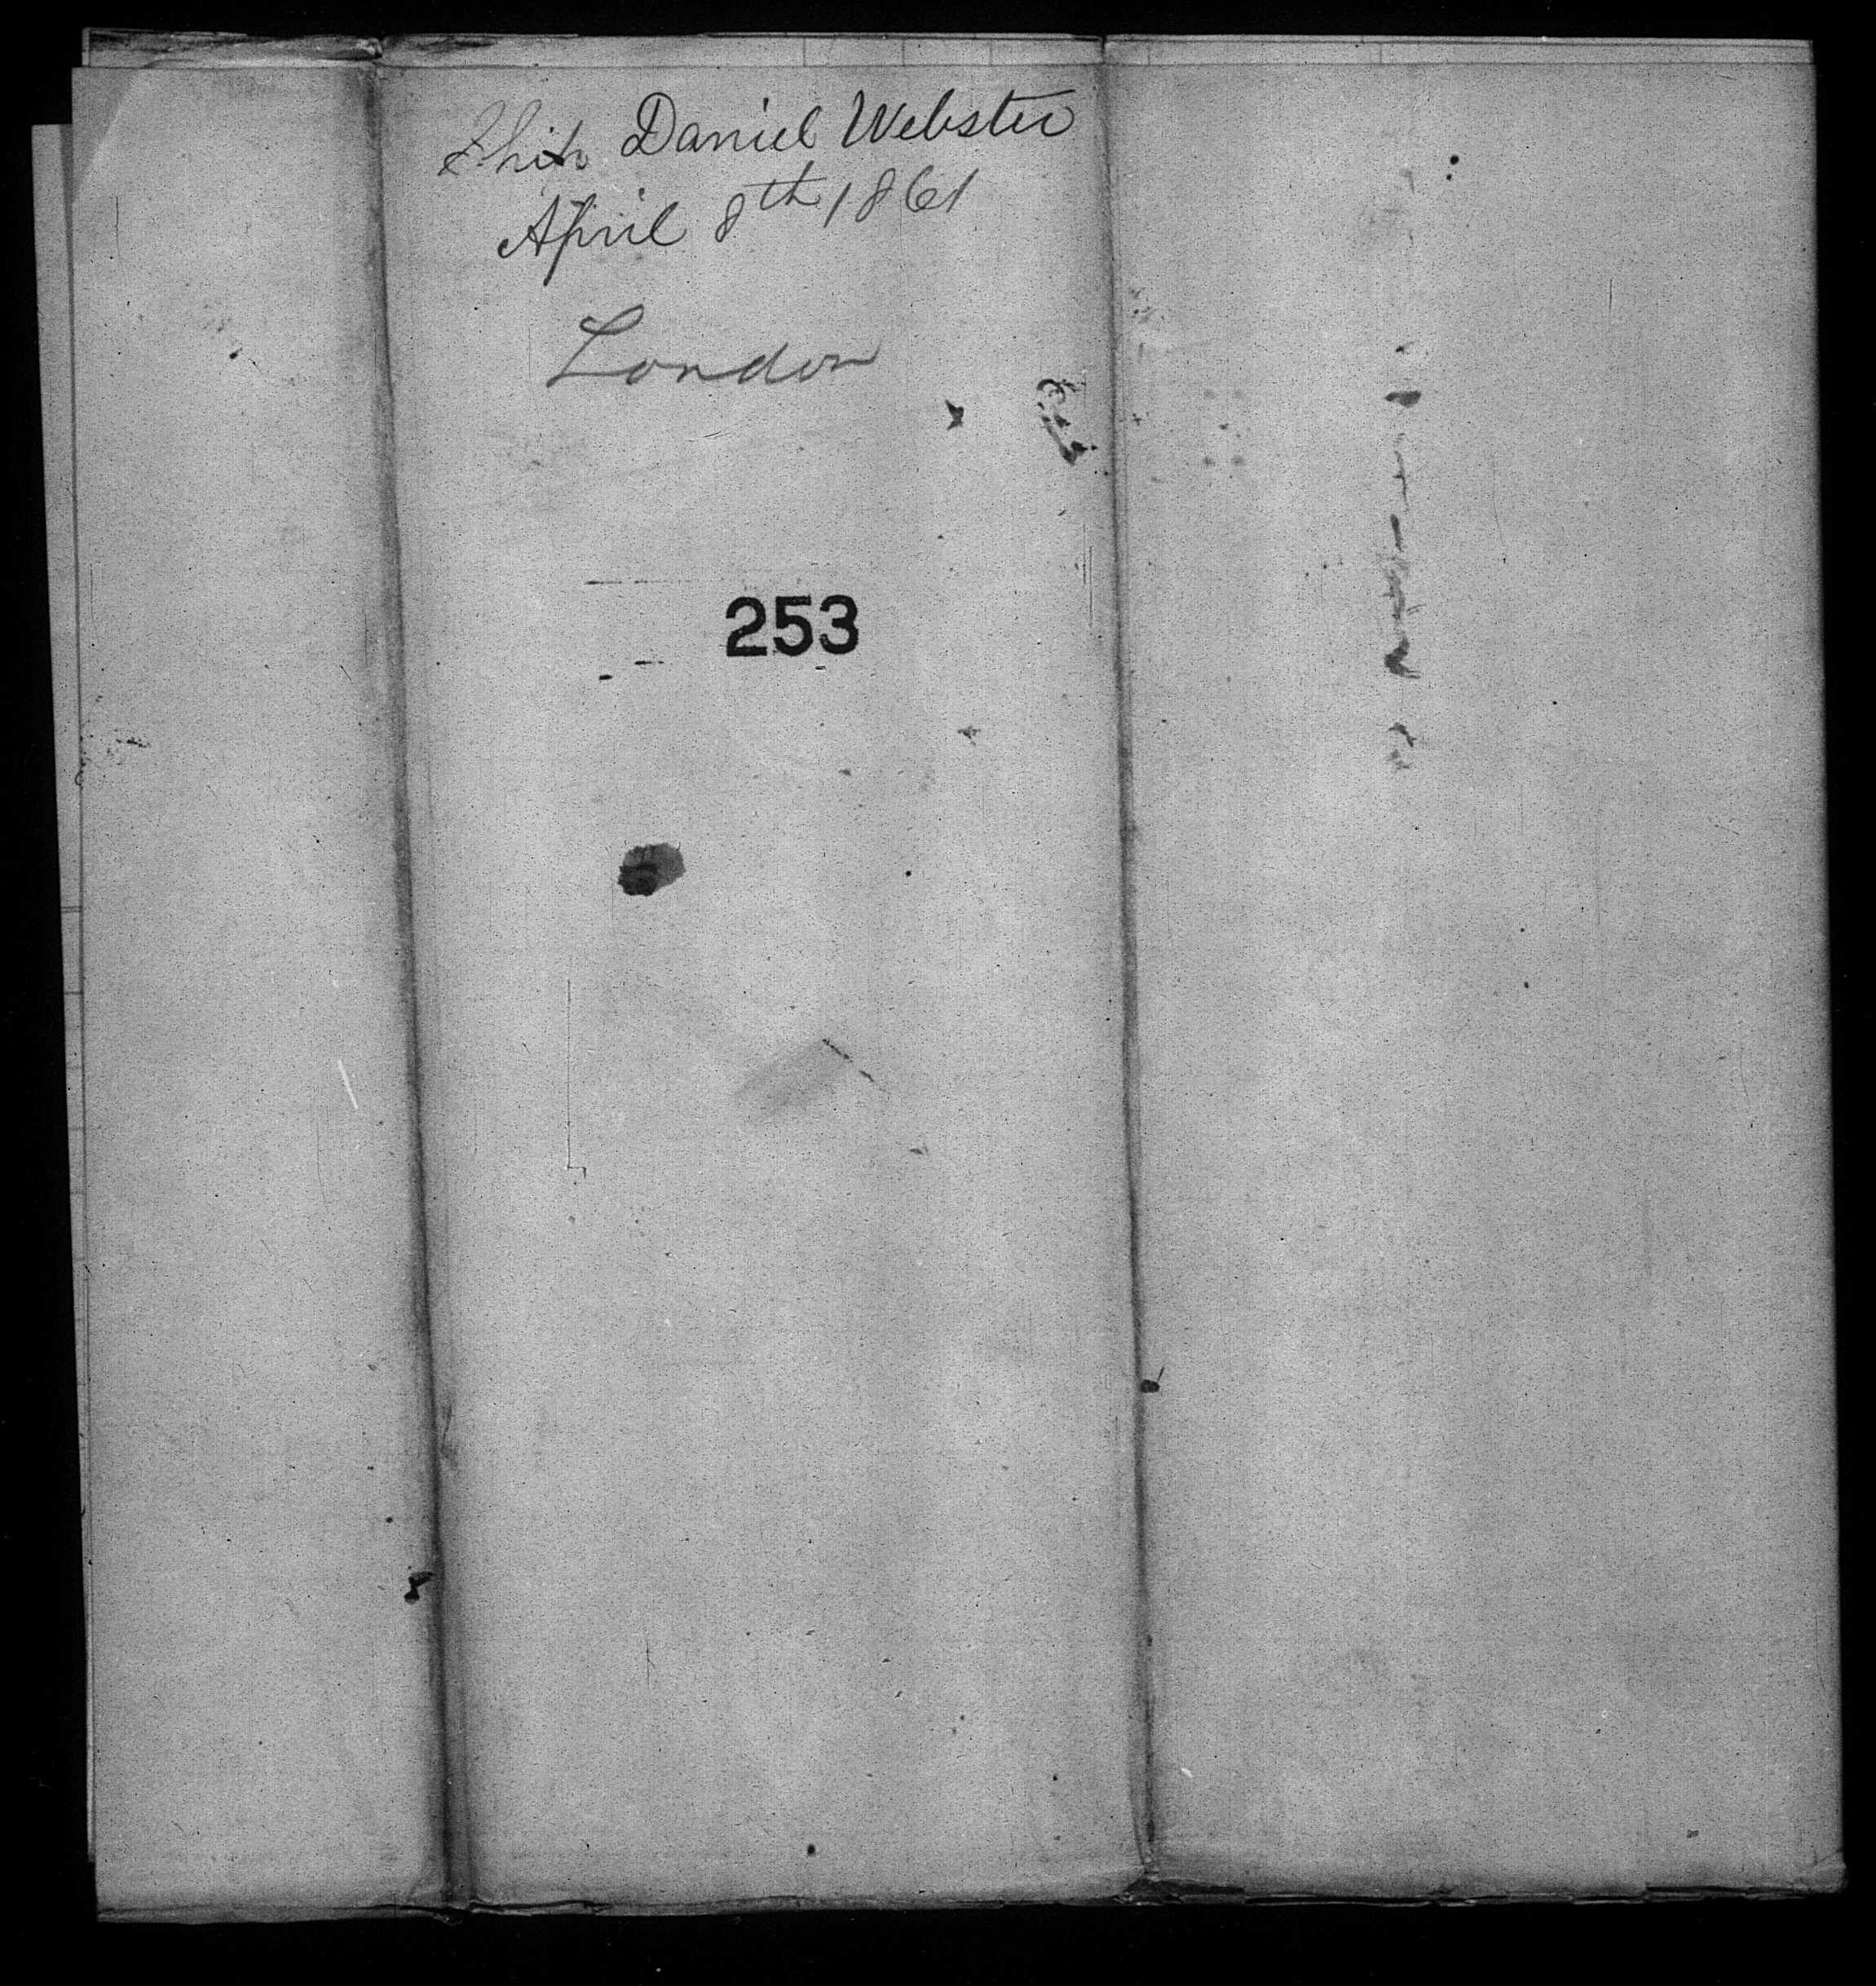 Ship Daniel Webster
April 8th 1861
London
253